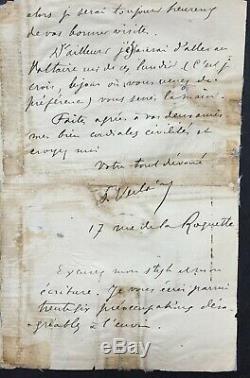 alors je serai toujours heureux
de vos bonnes visites.
D'ailleurs j'essaierai d'aller au
Voltaire un de ces lundis (C'est, je
crois, le jour où vous venez de
préférence) vous serrer la main.
Faites agréer à vos
mes bien cordiales civilités et
croyez moi
Votre tout dévoué
P. Verlaine
17 rue de la Roquette
Excusez mon style et mon
écriture. Je vous écris parmi
trente six préoccupations désa-
gréables à l'envi.